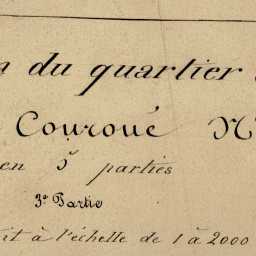 du quartier
Couroué N
en 5 parties
3e Partie
it à l'échelle de 1 à 2000